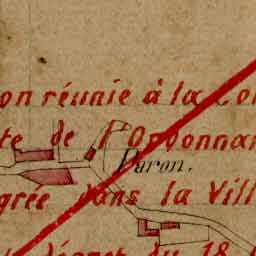 on réunie à la Co
te de l'Ordonnan
Paron.
grée dans la Vill
décret du 18